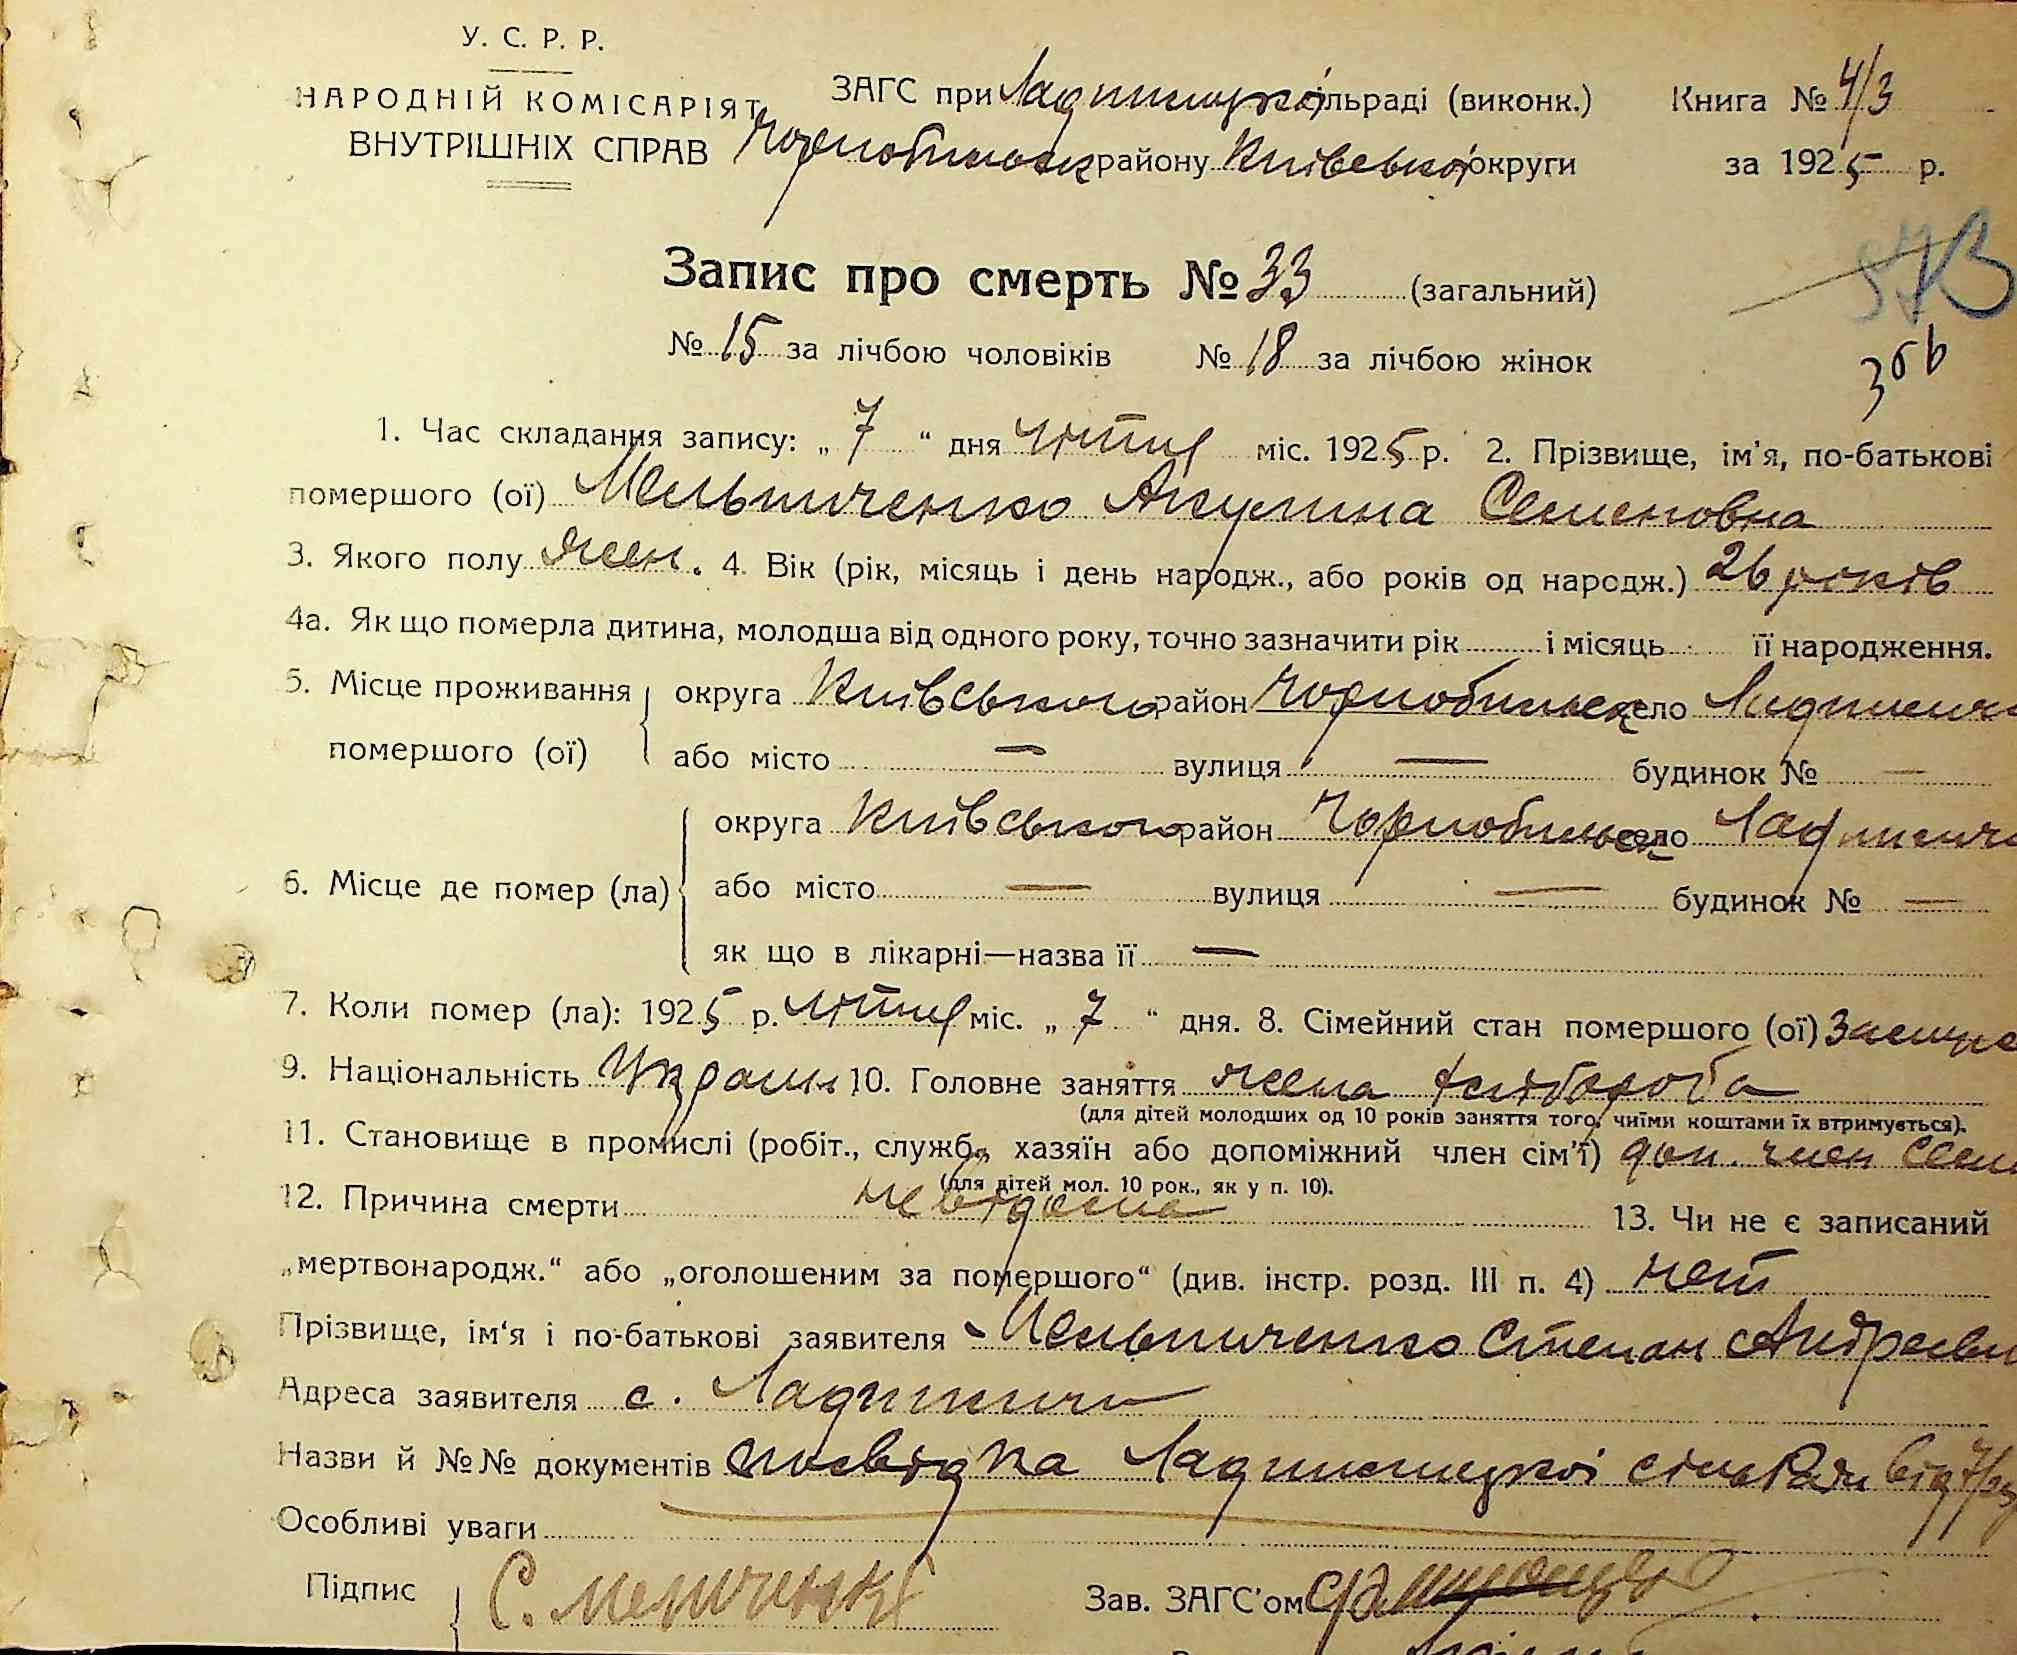 У. С. Р. Р.
НАРОДНІЙ КОМІСАРІЯТ
ВНУТРІШНІХ СПРАВ
ЗАГС при Ладижицькій сільраді (виконк.)
Чорнобильск району Київської округи
Книга № 4/3
за 1925 р.
Запис про смерть № 33 (загальний)
366
№ 15 за лічбою чоловіків № 18 за лічбою жінок
1. Час складання запису: „ 7 “ дня міс. 1925 р. 2. Прізвище, ім'я, по-батькові
помершого (ої) Мельниченко Акулина Семеновна
3. Якого полу жен. 4. Вік (рік, місяць і день народж., або років од народж.) 26 років
4а. Як що померла дитина, молодша від одного року, точно зазначити рік і місяць її народження.
5. Місце проживання помершого (ої) округа Київського район Чорнобильск село Ладижичи
або місто — вулиця — будинок № —
6. Місце де помер (ла) округа Київського район Чорнобильск село Ладижичи
або місто — вулиця — будинок № —
як що в лікарні—назва її —
7. Коли помер (ла): 1925 р. міс. „ 7 “ дня. 8. Сімейний стан помершого (ої) Замуж
9. Національність Украин 10. Головне заняття жена хлібороба
(для дітей молодших од 10 років заняття того, чиїми коштами їх втримується).
11. Становище в промислі (робіт., служб., хазяїн або допоміжний член сім'ї) доп. член семи
(для дітей мол. 10 рок., як у п. 10).
12. Причина смерти невідома 13. Чи не є записаний
„мертвонародж.“ або „оголошеним за помершого“ (див. інстр. розд. III п. 4) нет
Прізвище, ім‘я і по-батькові заявителя Мельниченко Степан Андреєви
Адреса заявителя с. Ладижичи
Назви й №№ документів посвідка Ладижицької сільради від 7/
Особливі уваги
Підпис С. Мельченко Зав. ЗАГС'ом